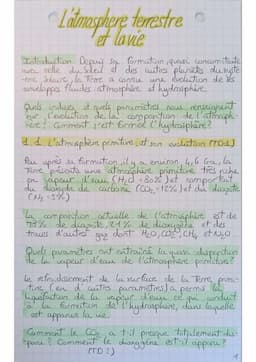 L'atmosphere terrestre
et la vie
Introduction: Depuis sa formation, quasi concomitante
avec celle du soleil et des autres planètes du systè-
me solaire, la Terre a connu une évolution de ses
enveloppes fluides: atmosphère et hydrosphère.
Quels indices et quels paramètres nous renseignent
sur l'évolution de la composition de l'atmosph-
ère? Comment s'est formée l'hydrosphère?
L'atmosphère primitive et son évolution (TD1)
Peu après sa formation, il y a environ 4,6 Ga, la
Terre présente une atmosphère primitive très riche
en vapeur d'eau (H2O ≈80%) et comportant
du dioxyde de carbone (CO2 ≈12%) et du diazote
(N2 ≈5%)
La composition actuelle de l'atmosphère est de
78% de diazote, 21% de dioxygène et des
traces d'autres gaz dont H2O, CO2, CH4 et N2O.
Quels paramètres ont entraîné la quasi disparition
de la vapeur d'eau de l'atmosphère primitive?
Le refroidissement de la surface de la Terre primi-
tive (en d'autres paramètres) a permis la
liquéfaction de la vapeur d'eau, ce qui conduit
à la formation de l'hydrosphère, dans laquelle
est apparue la vie.
Comment le CO2 a-t-il presque totalement dis-
paru? Comment le dioxygène est-il apparu?
(TD2)
1